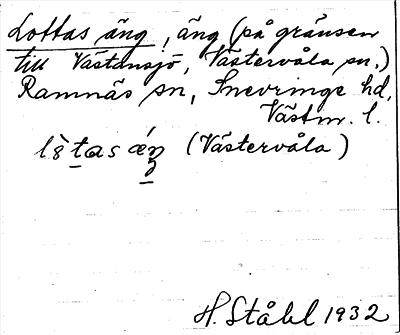 Lottas äng, äng (på gränsen
till Västansjö, Västervåla sn,)
Ramnäs sn, Snevringe hd,
Västm. l.
(Västervåla)
H. Ståhl 1932